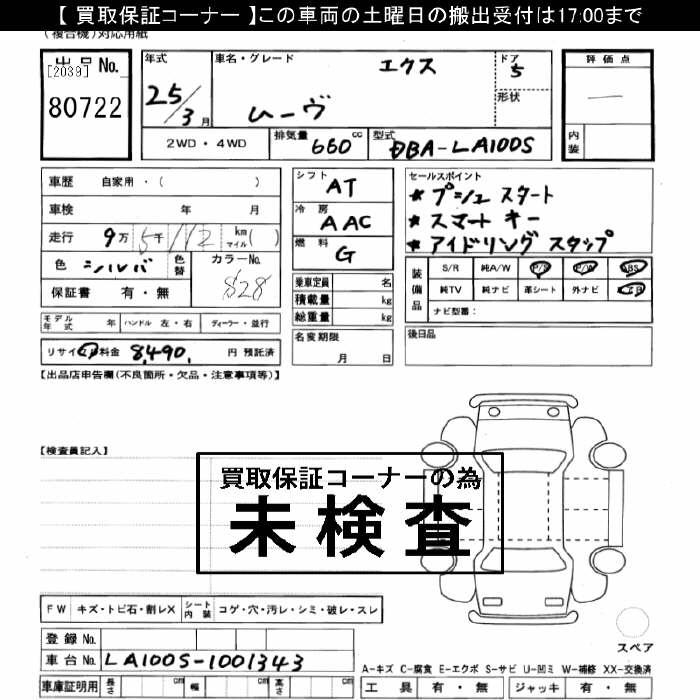 【 買取保証コーナー 】この車両の土曜日の搬出受付は17:00まで
(複合機)対応用紙
出品No.
[2039]
80722
年式
25/3月
車名・グレード
エクス
ムーヴ
ドア
5
形状
評価点
—
内装
2WD・4WD
排気量
660 cc
型式
DBA-LA100S
車歴 自家用・( )
車検 年 月
走行 9万5千112 km マイル( )
色 シルバ
色替
カラーNo.
S28
保証書 有・無
モデル年式 年 ハンドル 左・右 ディーラー・並行
リサイクル料金 8,490, 円 預託済
シフト
AT
冷房
AAC
燃料
G
乗車定員 名
積載量 kg
総重量 kg
名変期限
月 日
セールスポイント
★ プシュ スタート
★ スマート キー
★ アイドリング スタップ
装備品
S/R 純A/W P/S P/W ABS
純TV 純ナビ 革シート 外ナビ エアB
ナビ型番:
後日品
【出品店申告欄(不良箇所・欠品・注意事項等)】
【検査員記入】
買取保証コーナーの為
未検査
FW キズ・トビ石・割レX シート内装 コゲ・穴・汚レ・シミ・破レ・スレ
登録No.
車台No. LA100S-1001343
車庫証明用 長さ cm 幅 cm 高さ cm
スペア
A-キズ C-腐食 E-エクボ S-サビ U-凹ミ W-補修 XX-交換済
工具 有・無 ジャッキ 有・無